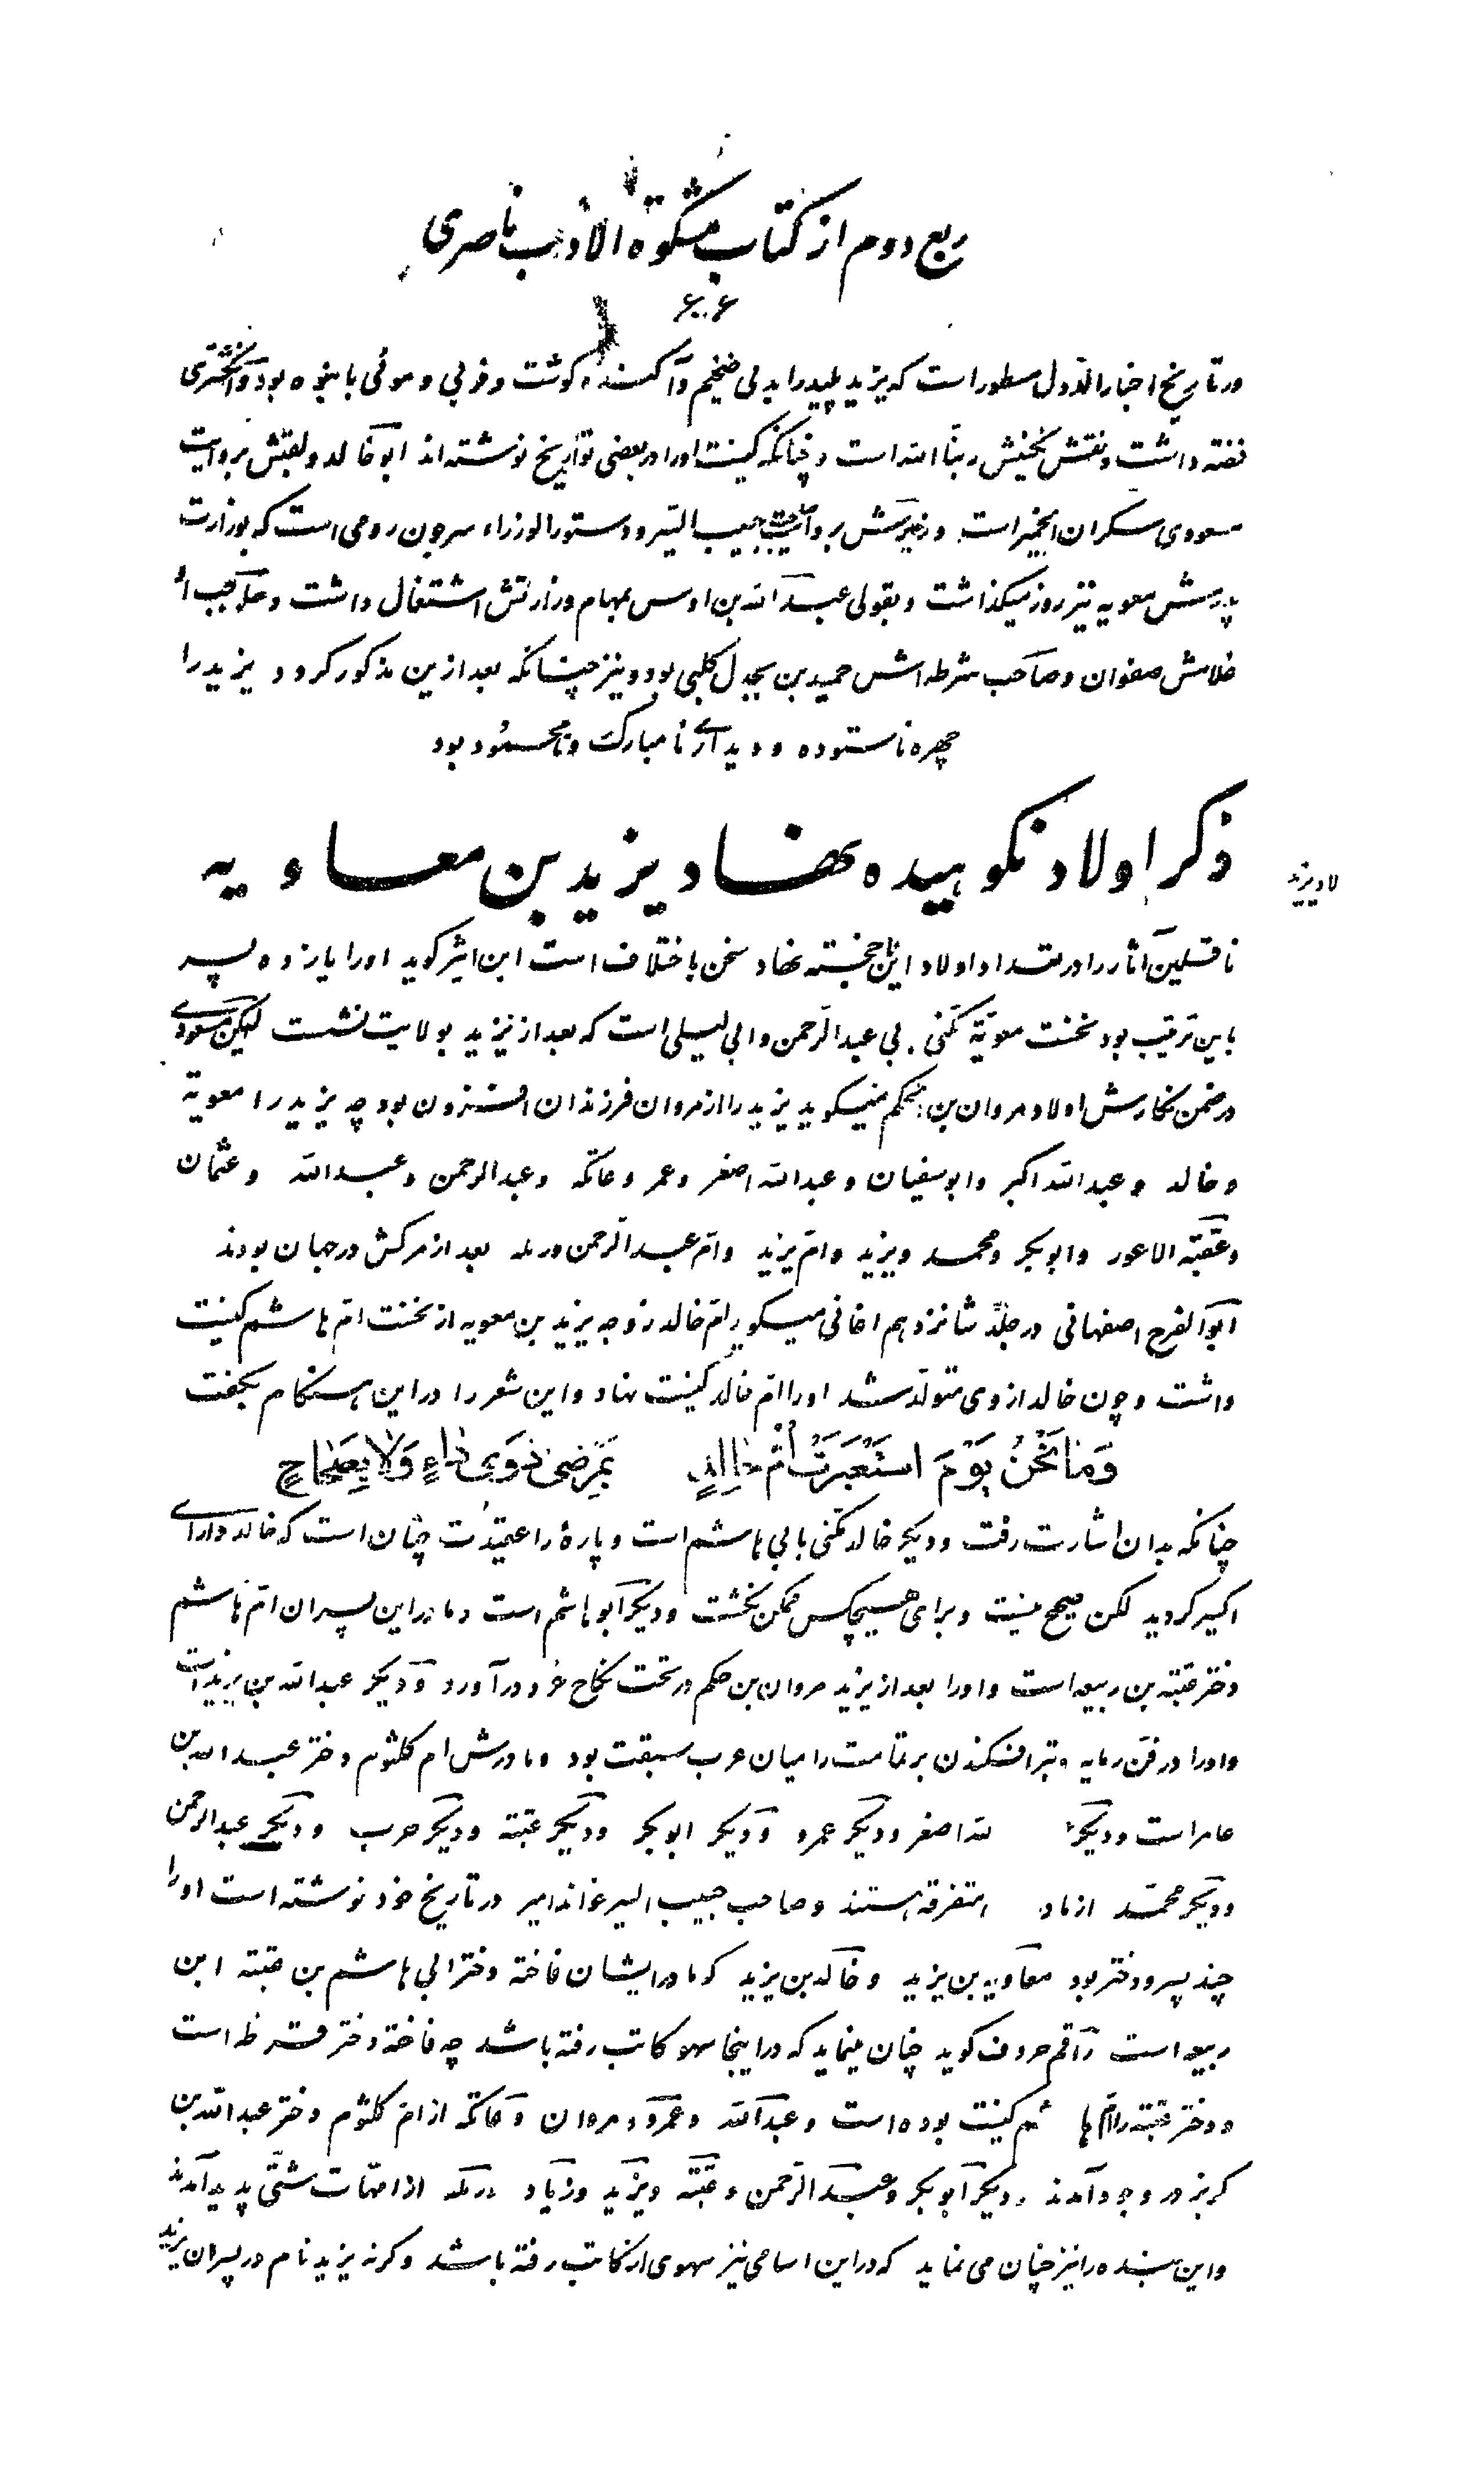 ربع دوم از کتاب مشکوة الادب ناصری
۶۰۶
در تاریخ اخبار الدول مسطور است که یزید پلید را بدنی ضخیم و آکنده کوشت و فربی و موئی بانبوه بود و انکشتری
فضه داشت و نقش نکینش ربنا الله است و چنانکه کنیت او را در بعضی تواریخ نوشته‌اند ابو خالد و لقبش بروایت
مسعودی سکران الخمیر است و وزیرش بروایت صاحب حبیب السیر و دستور الوزراء سرجون رومی است که بوزارت
پدرش معویه نیز روز میکذاشت و بقولی عبد الله بن اوس بمهام وزارتش اشتغال داشت و حاجب او
غلامش صفوان و صاحب شرطه‌اش حمید بن بجدل کلبی بود و نیز چنانکه بعد ازین مذکور کردد یزید را
چهره ناستوده و دیداری نامبارک و نامحمود بود
ذکر اولاد نکوهیده نهاد یزید بن معاویه
لاد یزید
ناقلین آثار را در تعداد اولاد این خجسته نهاد سخن باختلاف است ابن اثیر کوید او را یازده پسر
باین ترتیب بود نخست معویة مکنی بابی عبد الرحمن و ابی لیلی است که بعد از یزید بولایت نشست لیکن مسعودی
در ضمن نکارش اولاد مروان بن الحکم میکوید یزید را از مروان فرزندان افزون بود چه یزید را معویة
و خالد و عبد الله اکبر و ابو سفیان و عبد الله اصغر و عمر و عاتکه و عبد الرحمن و عبد الله و عثمان
و عتبة الاعور و ابو بکر و محمد و یزید و ام یزید و ام عبد الرحمن و رمله بعد از مرکش در جهان بودند
ابو الفرج اصفهانی در جلد شانزدهم اغانی میکوید ام خالد زوجه یزید بن معویه از نخست ام هاشم کنیت
داشت و چون خالد از وی متولد شد او را ام خالد کنیت نهاد و این شعر را در این هنکام بکفت
وَمَا نَحْنُ یَوْمَ اسْتَعْبَرَتْ أُمُّ خَالِدٍ بِمَرْضَى ذَوِی دَاءٍ وَلَا بِصِحَاحِ
چنانکه بدان اشارت رفت و دیکر خالد مکنی بابی هاشم است و پارهٔ را عقیدت چنان است که خالد دارای
اکسیر کردید لکن صحیح نیست و برای هیچکس ممکن نکشت و دیکر ابو هاشم است و مادر این پسران ام هاشم
دختر عتبة بن ربیعه است و او را بعد از یزید مروان بن حکم در تحت نکاح خود در آورد و دیکر عبد الله بن یزید است
و او را در فن رمایه و تیر افکندن بر تمامت رامیان عرب سبقت بود و مادرش ام کلثوم دختر عبد الله بن
عامر است و دیکر لله اصغر و دیکر عمرو و دیکر ابو بکر و دیکر عتبة و دیکر حرب و دیکر عبد الرحمن
و دیکر محمد از ماد متفرقه هستند و صاحب حبیب السیر غاندامیر در تاریخ خود نوشته است او را
چند پسر و دختر بود معاویة بن یزید و خالد بن یزید که مادر ایشان فاخته دختر ابی هاشم بن عتبة ابن
ربیعه است راقم حروف کوید چنان مینماید که در اینجا سهو کاتب رفته باشد چه فاخته دختر قرظه است
و دختر عتبة را ام هاشم کنیت بوده است و عبد الله و عمرو و مروان و عاتکه از ام کلثوم دختر عبد الله بن
کریز در وجود آمدند و دیکر ابو بکر و عبد الرحمن و عتبة و یزید و زیاد و رمله از امهات شتی پدید آمدند
و این بنده را نیز چنان می نماید که در این اسامی نیز سهوی از کاتب رفته باشد و کرنه یزید نام در پسران یزید